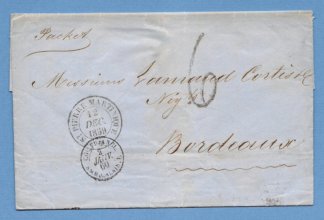 Packet
6
Messieurs Lamaud Cortis &
Nég.
Bordeaux
ST PIERRE MARTINIQUE
12
DÉC.
1859
2
JANV.
60